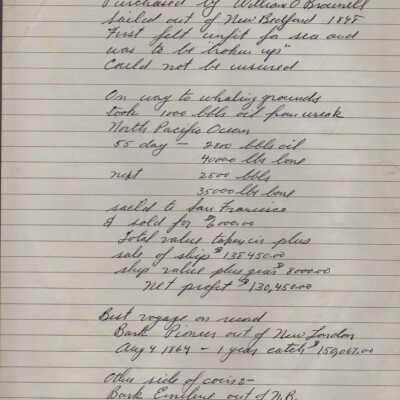 Purchased by William O Brownell
sailed out of New Bedford 1848
First felt unfit for sea and
was to be "broken up"
Could not be insured
On way to whaling grounds
took 1000 bbls oil from wreak
North Pacific Ocean
55 day - 2800 bbls oil
40000 lbs bone
next 2500 bbls
35000 lbs bone
saeld to San Francisco
& sold for $6000.00
Total value taken in plus
sale of ship $138450.00
ship value plus gear $8000.00
Net profit $130,450.00
Best voyage on read
Bark Pioneer out of New London
Aug 4 1864 - 1 year catch $150,067.00
Other side of coins -
Bark Emeline out of N.B.